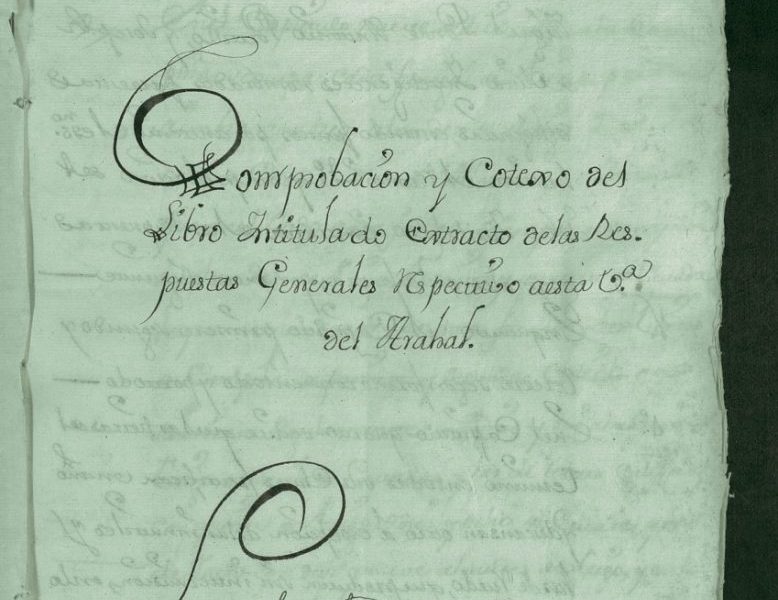 Comprobacion y Cotexo del
Libro Intitulado Extracto delas Res-
puestas Generales Rspectivo aesta V.ª
del Arahal.